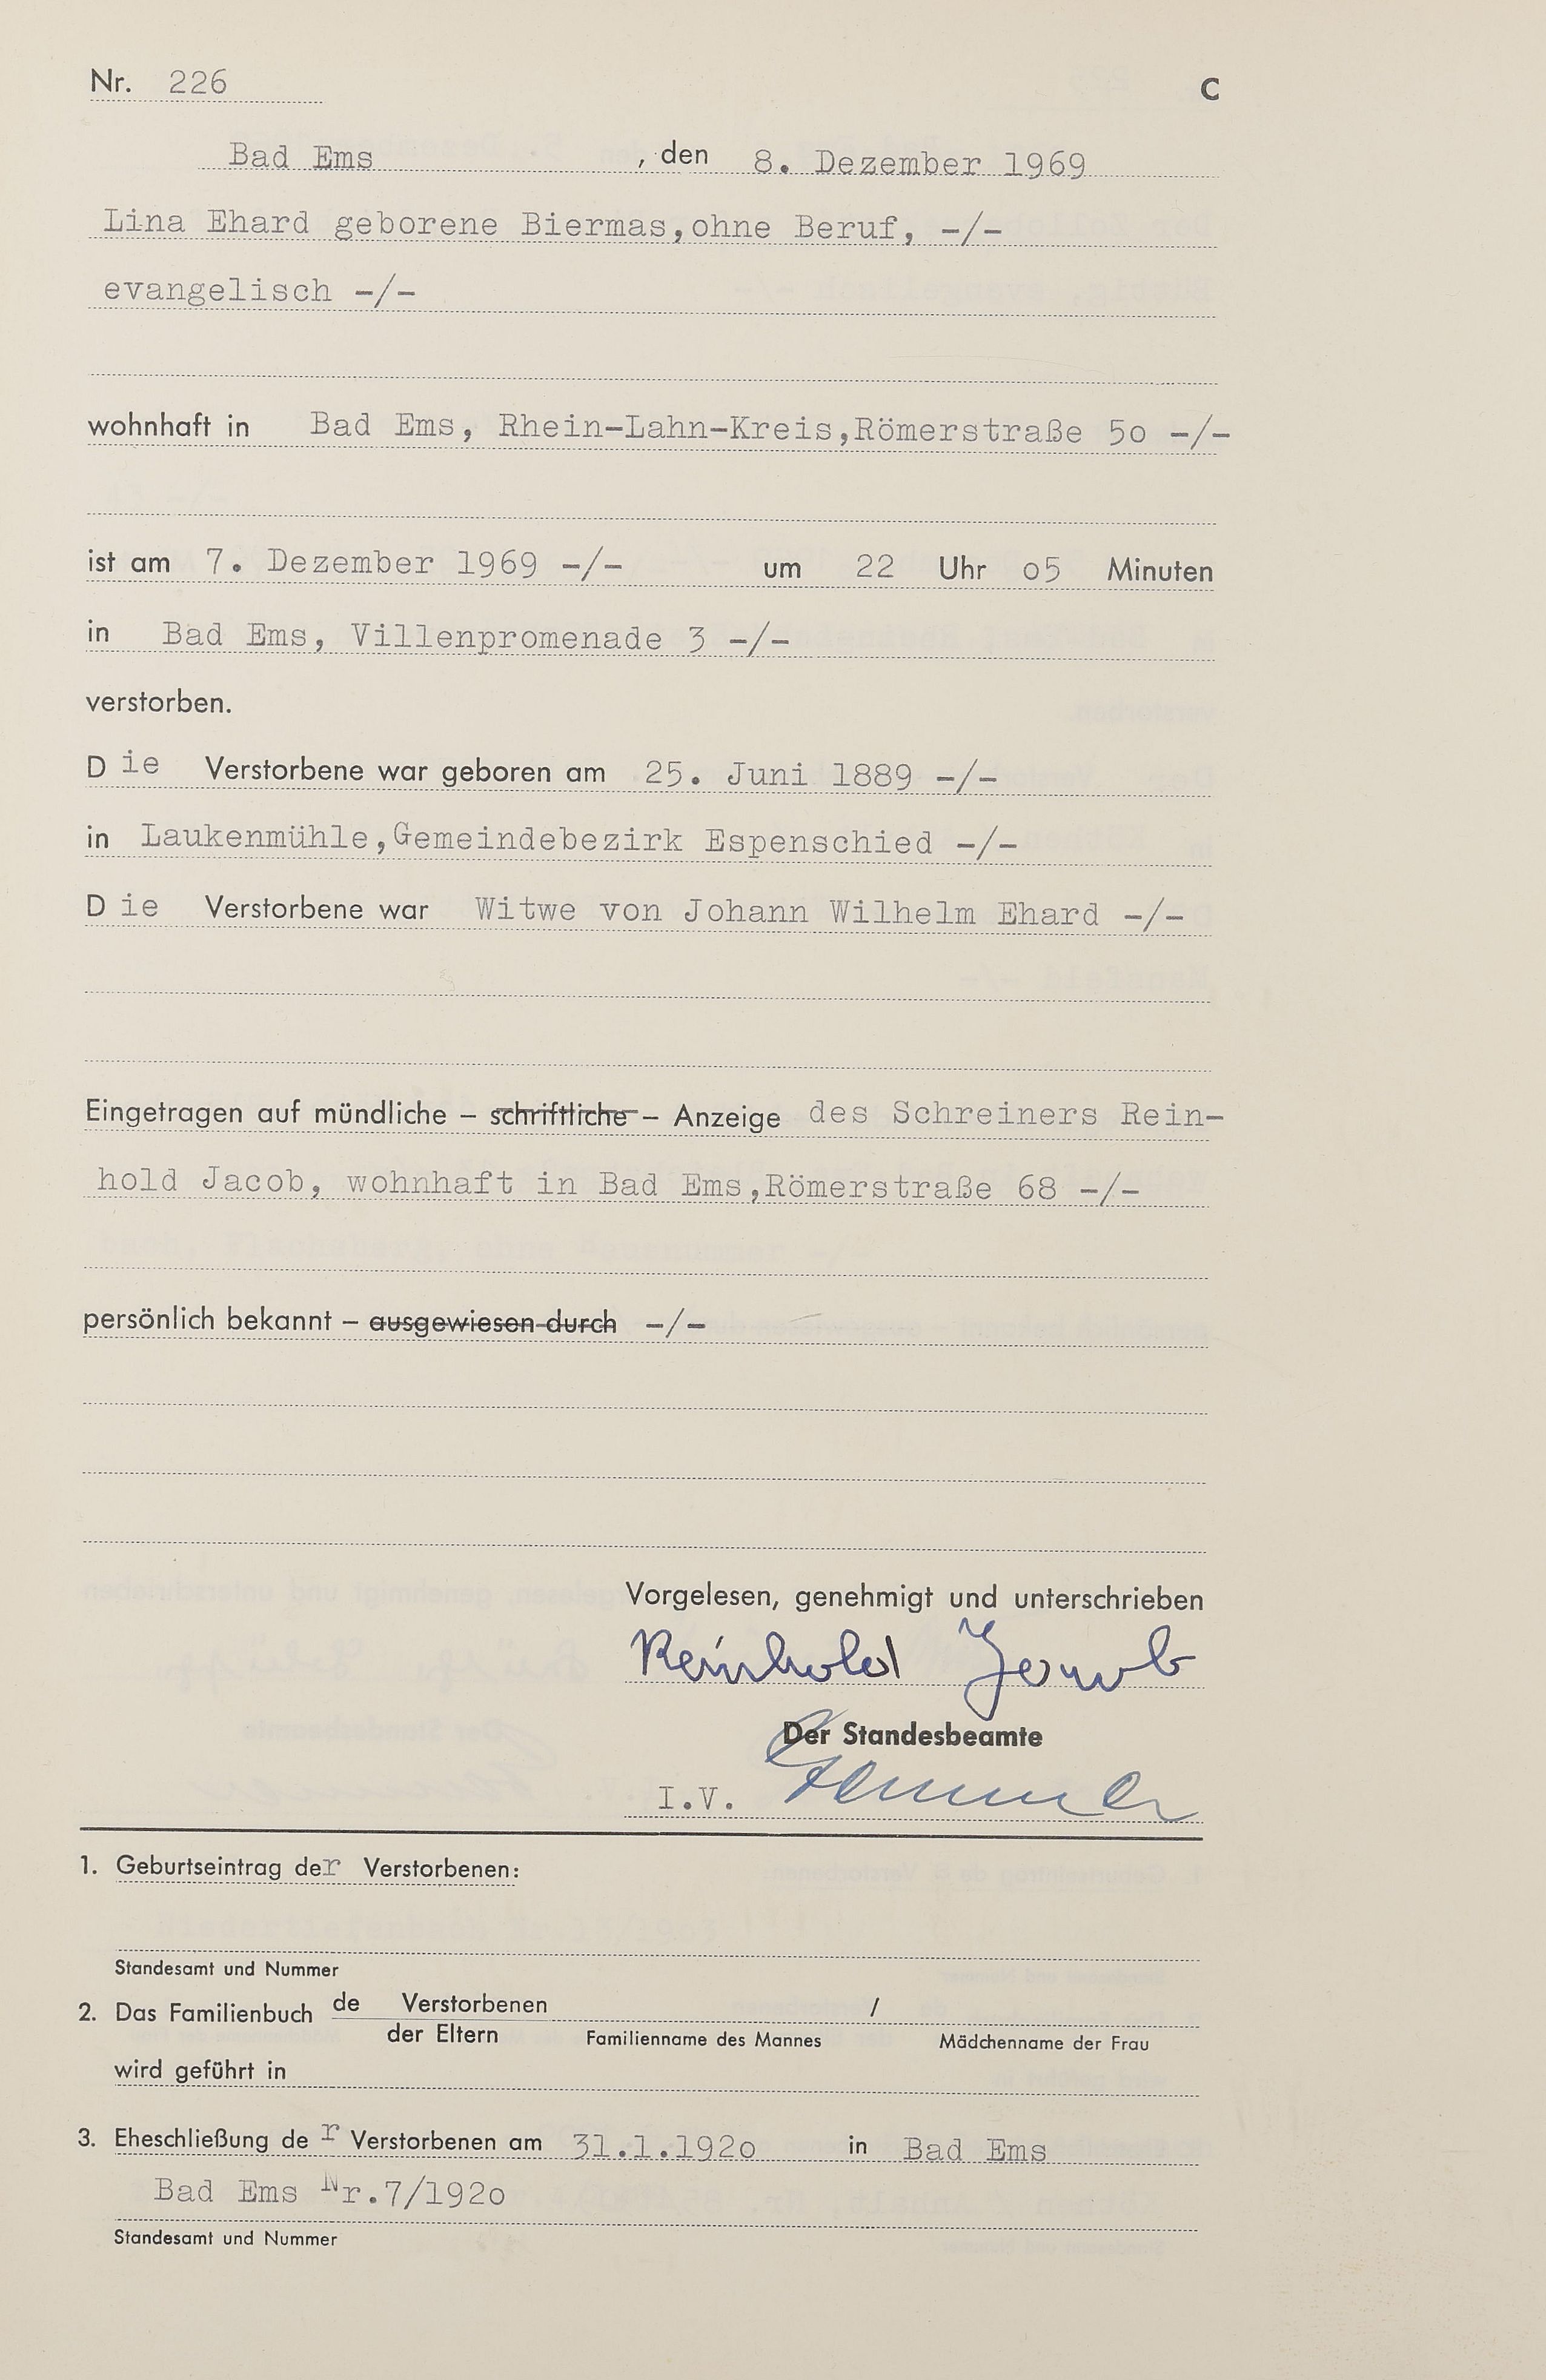 Nr. 226 C
Bad Ems , den 8. Dezember 1969
Lina Ehard geborene Biermas,ohne Beruf, -/-
evangelisch -/-
wohnhaft in Bad Ems, Rhein-Lahn-Kreis,Römerstraße 5o -/-
ist am 7. Dezember 1969 -/- um 22 Uhr o5 Minuten
in Bad Ems, Villenpromenade 3 -/-
verstorben.
Die Verstorbene war geboren am 25. Juni 1889 -/-
in Laukenmühle,Gemeindebezirk Espenschied -/-
Die Verstorbene war Witwe von Johann Wilhelm Ehard -/-
Eingetragen auf mündliche – schriftliche – Anzeige des Schreiners Rein-
hold Jacob, wohnhaft in Bad Ems,Römerstraße 68 -/-
persönlich bekannt – ausgewiesen durch -/-
Vorgelesen, genehmigt und unterschrieben
Reinhold Jacob
Der Standesbeamte
I.V.
1. Geburtseintrag der Verstorbenen:
Standesamt und Nummer
2. Das Familienbuch de Verstorbenen /
der Eltern Familienname des Mannes Mädchenname der Frau
wird geführt in
3. Eheschließung der Verstorbenen am 31.1.192o in Bad Ems
Bad Ems Nr.7/192o
Standesamt und Nummer